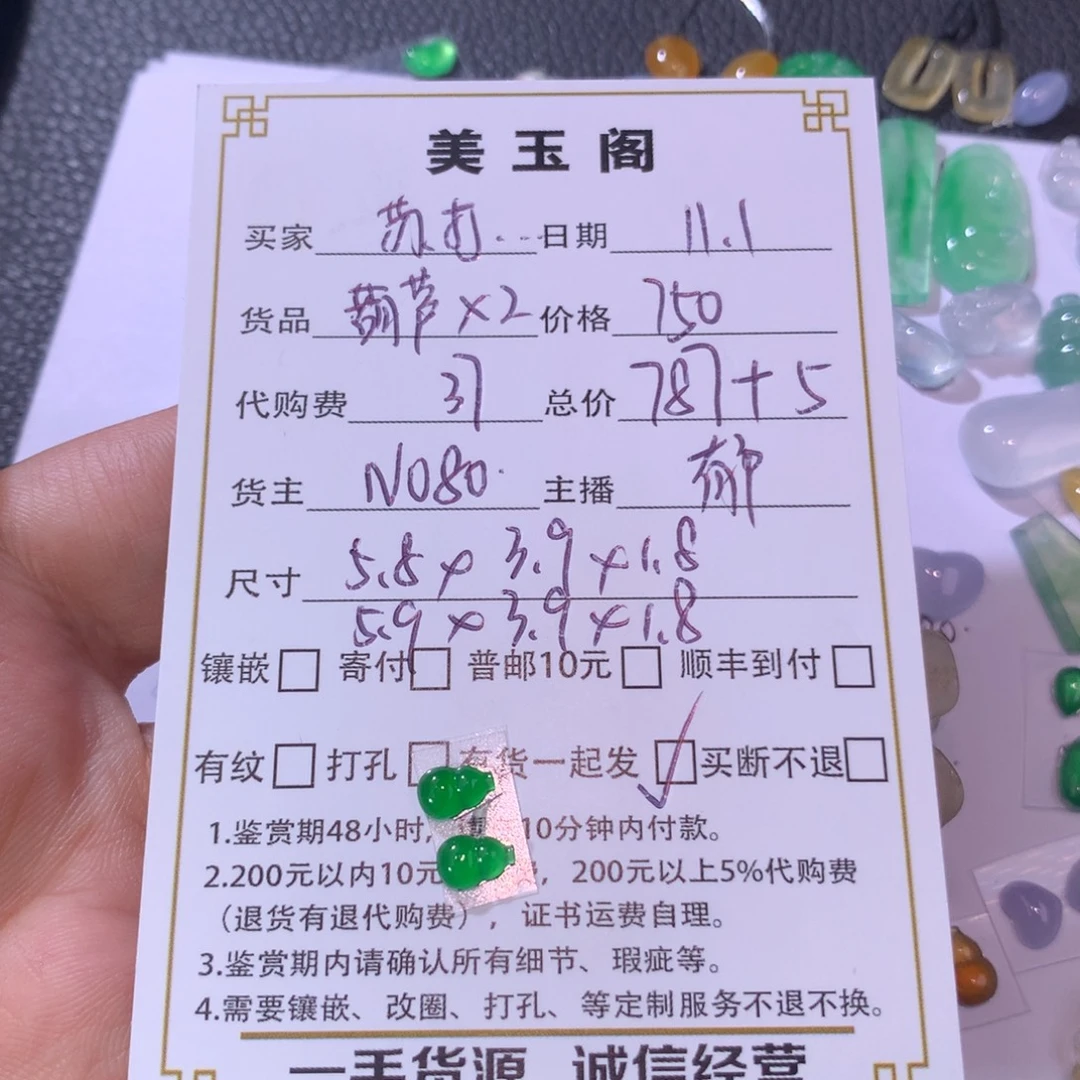 美玉阁
买家 苏打 日期 11.1
货品 葫芦×2 价格 750
代购费 37 总价 787+5
货主 N080 主播 郁
尺寸 5.8×3.9×1.8
5.9×3.9×1.8
镶嵌□ 寄付□ 普邮10元□ 顺丰到付□
有纹□ 打孔□ 有货一起发□✓ 买断不退□
1.鉴赏期48小时, 10分钟内付款。
2.200元以内10元 , 200元以上5%代购费
(退货有退代购费), 证书运费自理。
3.鉴赏期内请确认所有细节、瑕疵等。
4.需要镶嵌、改圈、打孔、等定制服务不退不换。
一手货源 诚信经营